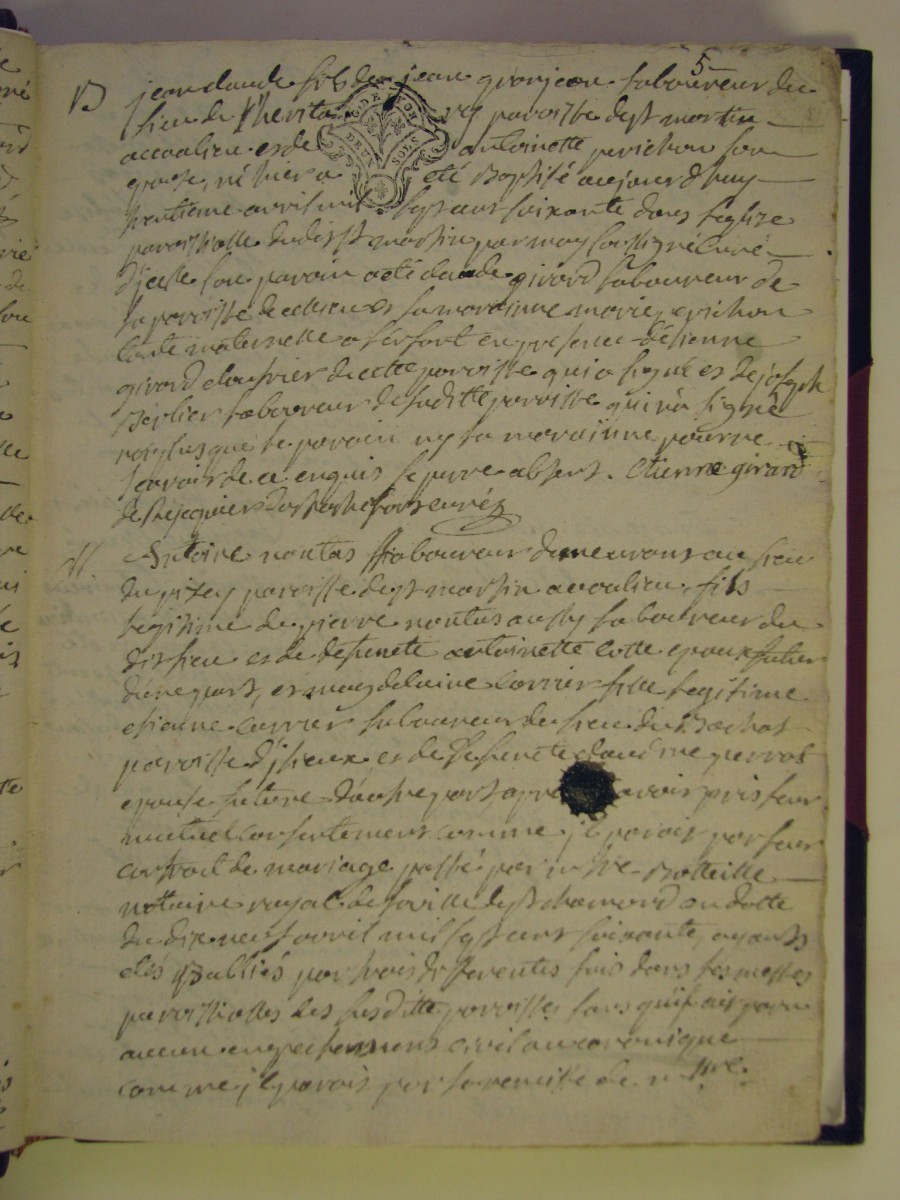 5
B jean claude fils de jean granjean laboureur du
lieu de paroisse de st martin
acoalieu et de antoinette perichon son
epouse, né hier a eté Baptisé aujourd'huy
trentieme avril mil sept cent soixante dans l'eglise
paroissialle dudit st martin par moy soussigné curé
d'jcelle son parain a eté claude girard laboureur de
la paroisse de cellieu et sa marainne marie perichon
tante maternelle en presence d'étienne
girard de cette paroisse qui a signé et de joseph
laboureur de saditte paroisse qui n'a signé
non plus que le parain ny la marainne pour ne
sçavoir de ce enquis le pere absent. Etienne girard
curé
M. Antoine laboureur demeurant au lieu
du paroisse de st martin acoulieu fils
legitime de pierre aussy laboureur du
dit lieu et de defuncte antoinette cotte epoux futur
d'une part, et magdelaine carrier fille legitime
etienne carrier laboureur du lieu du
paroisse d'jzieux et de defuncte claudine perrot
epouse future d'autre part apres avoir pris leur
mutuel consentement comme jl paroit par leur
contrat de mariage passé par
notaire royal de la ville de st chamond en datte
du dix neuf avril mil sept cent soixante, ayants
étés Publiés par trois differentes fois dans les messes
paroissialles des susditte paroisses sans qu'il ait paru
aucun empechement civil au canonique
comme jl parois par la remise de
DE LYON
DEUX SOLS